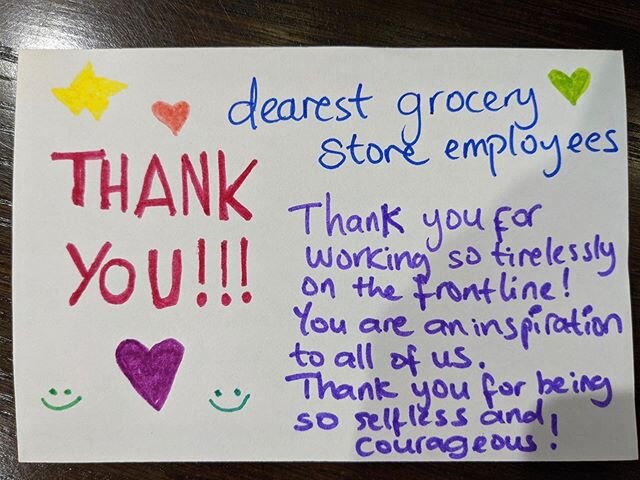 THANK
YOU!!!
dearest grocery
store employees
Thank you for
working so tirelessly
on the frontline!
You are an inspiration
to all of us.
Thank you for being
so selfless and
courageous!